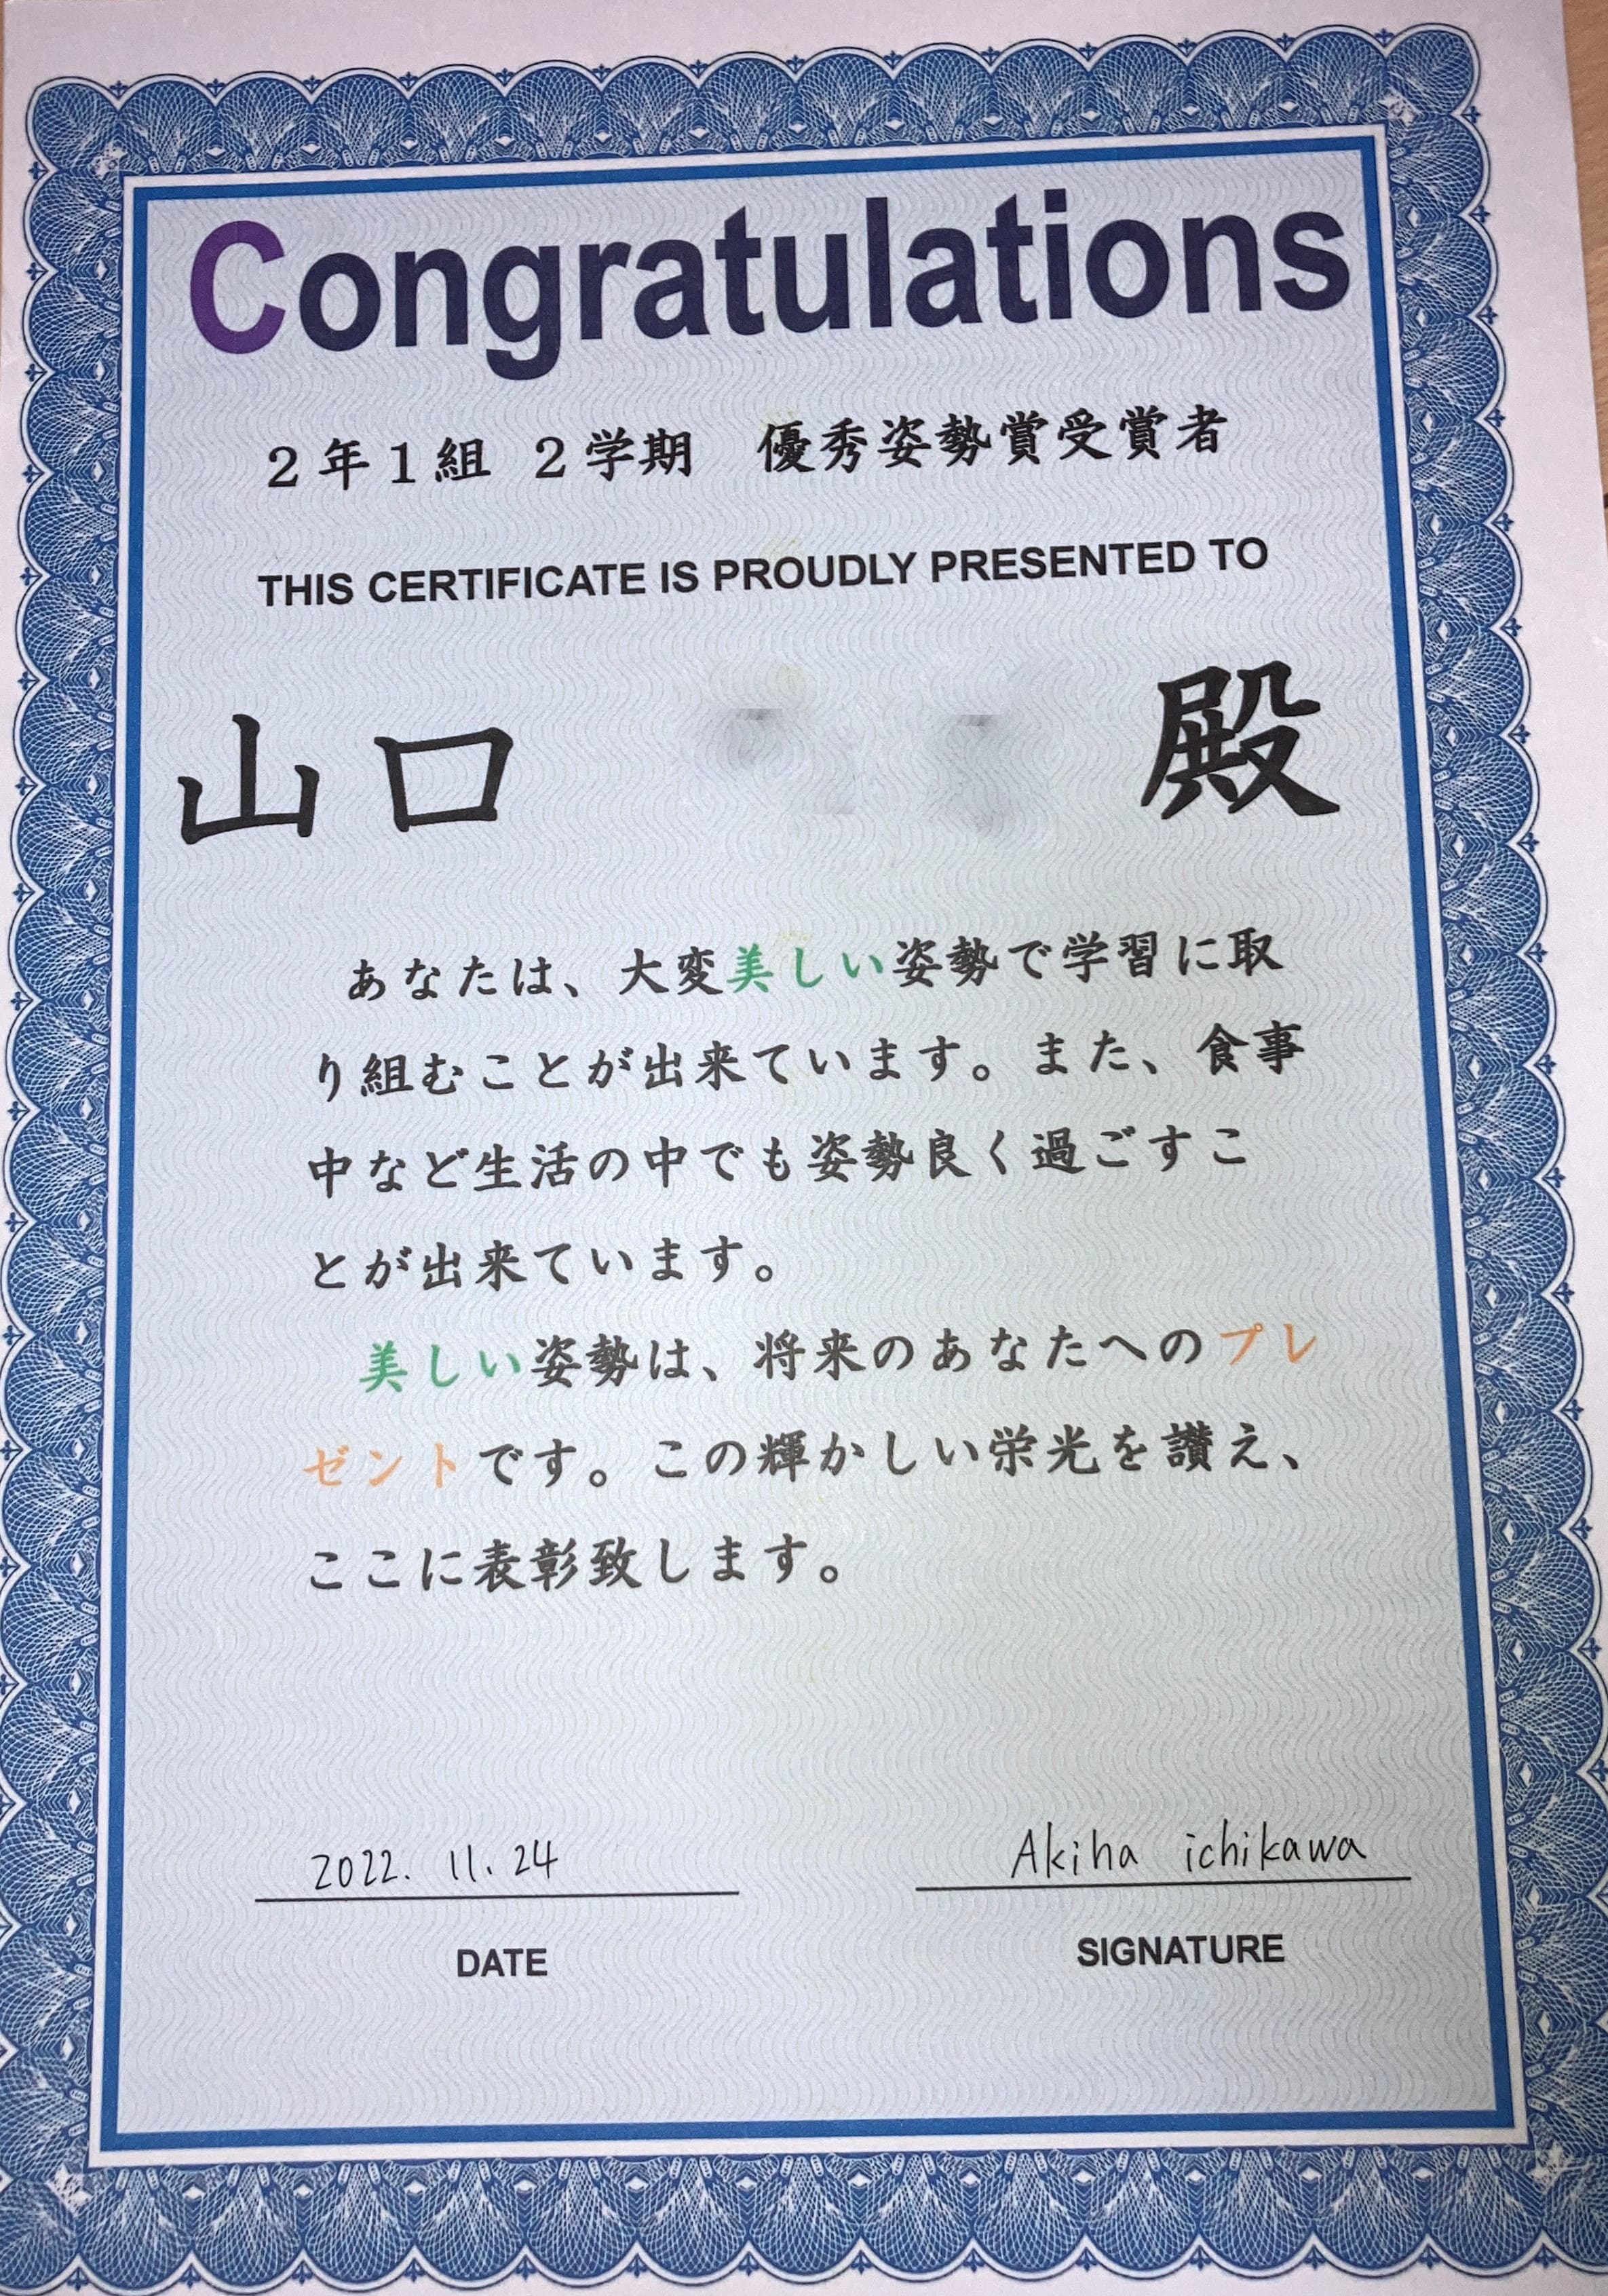 Congratulations
２年１組 ２学期　優秀姿勢賞受賞者
THIS CERTIFICATE IS PROUDLY PRESENTED TO
山口 殿
あなたは、大変美しい姿勢で学習に取
り組むことが出来ています。また、食事
中など生活の中でも姿勢良く過ごすこ
とが出来ています。
美しい姿勢は、将来のあなたへのプレ
ゼントです。この輝かしい栄光を讃え、
ここに表彰致します。
2022. 11. 24 Akiha ichikawa
DATE SIGNATURE